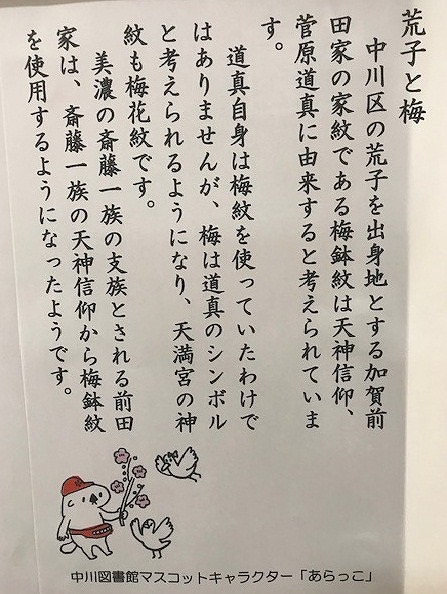 荒子と梅
中川区の荒子を出身地とする加賀前
田家の家紋である梅鉢紋は天神信仰、
菅原道真に由来すると考えられていま
す。
道真自身は梅紋を使っていたわけで
はありませんが、梅は道真のシンボル
と考えられるようになり、天満宮の神
紋も梅花紋です。
美濃の斎藤一族の支族とされる前田
家は、斎藤一族の天神信仰から梅鉢紋
を使用するようになったようです。
中川図書館マスコットキャラクター「あらっこ」